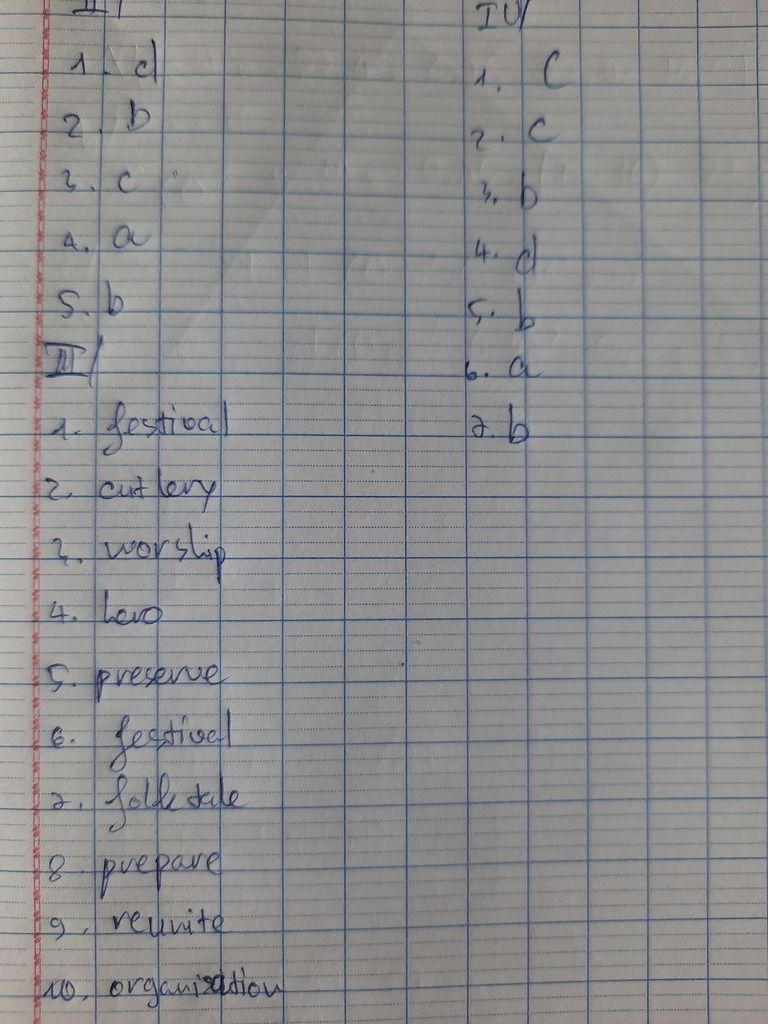 II/
1. d
2. b
3. c
4. a
5. b
III/
1. festival
2. cutlery
3. worship
4. hero
5. preserve
6. festival
7. folk tale
8 prepare
9. reunite
10. organisation
IV/
1. C
2. C
3. b
4. d
5. b
6. a
7. b